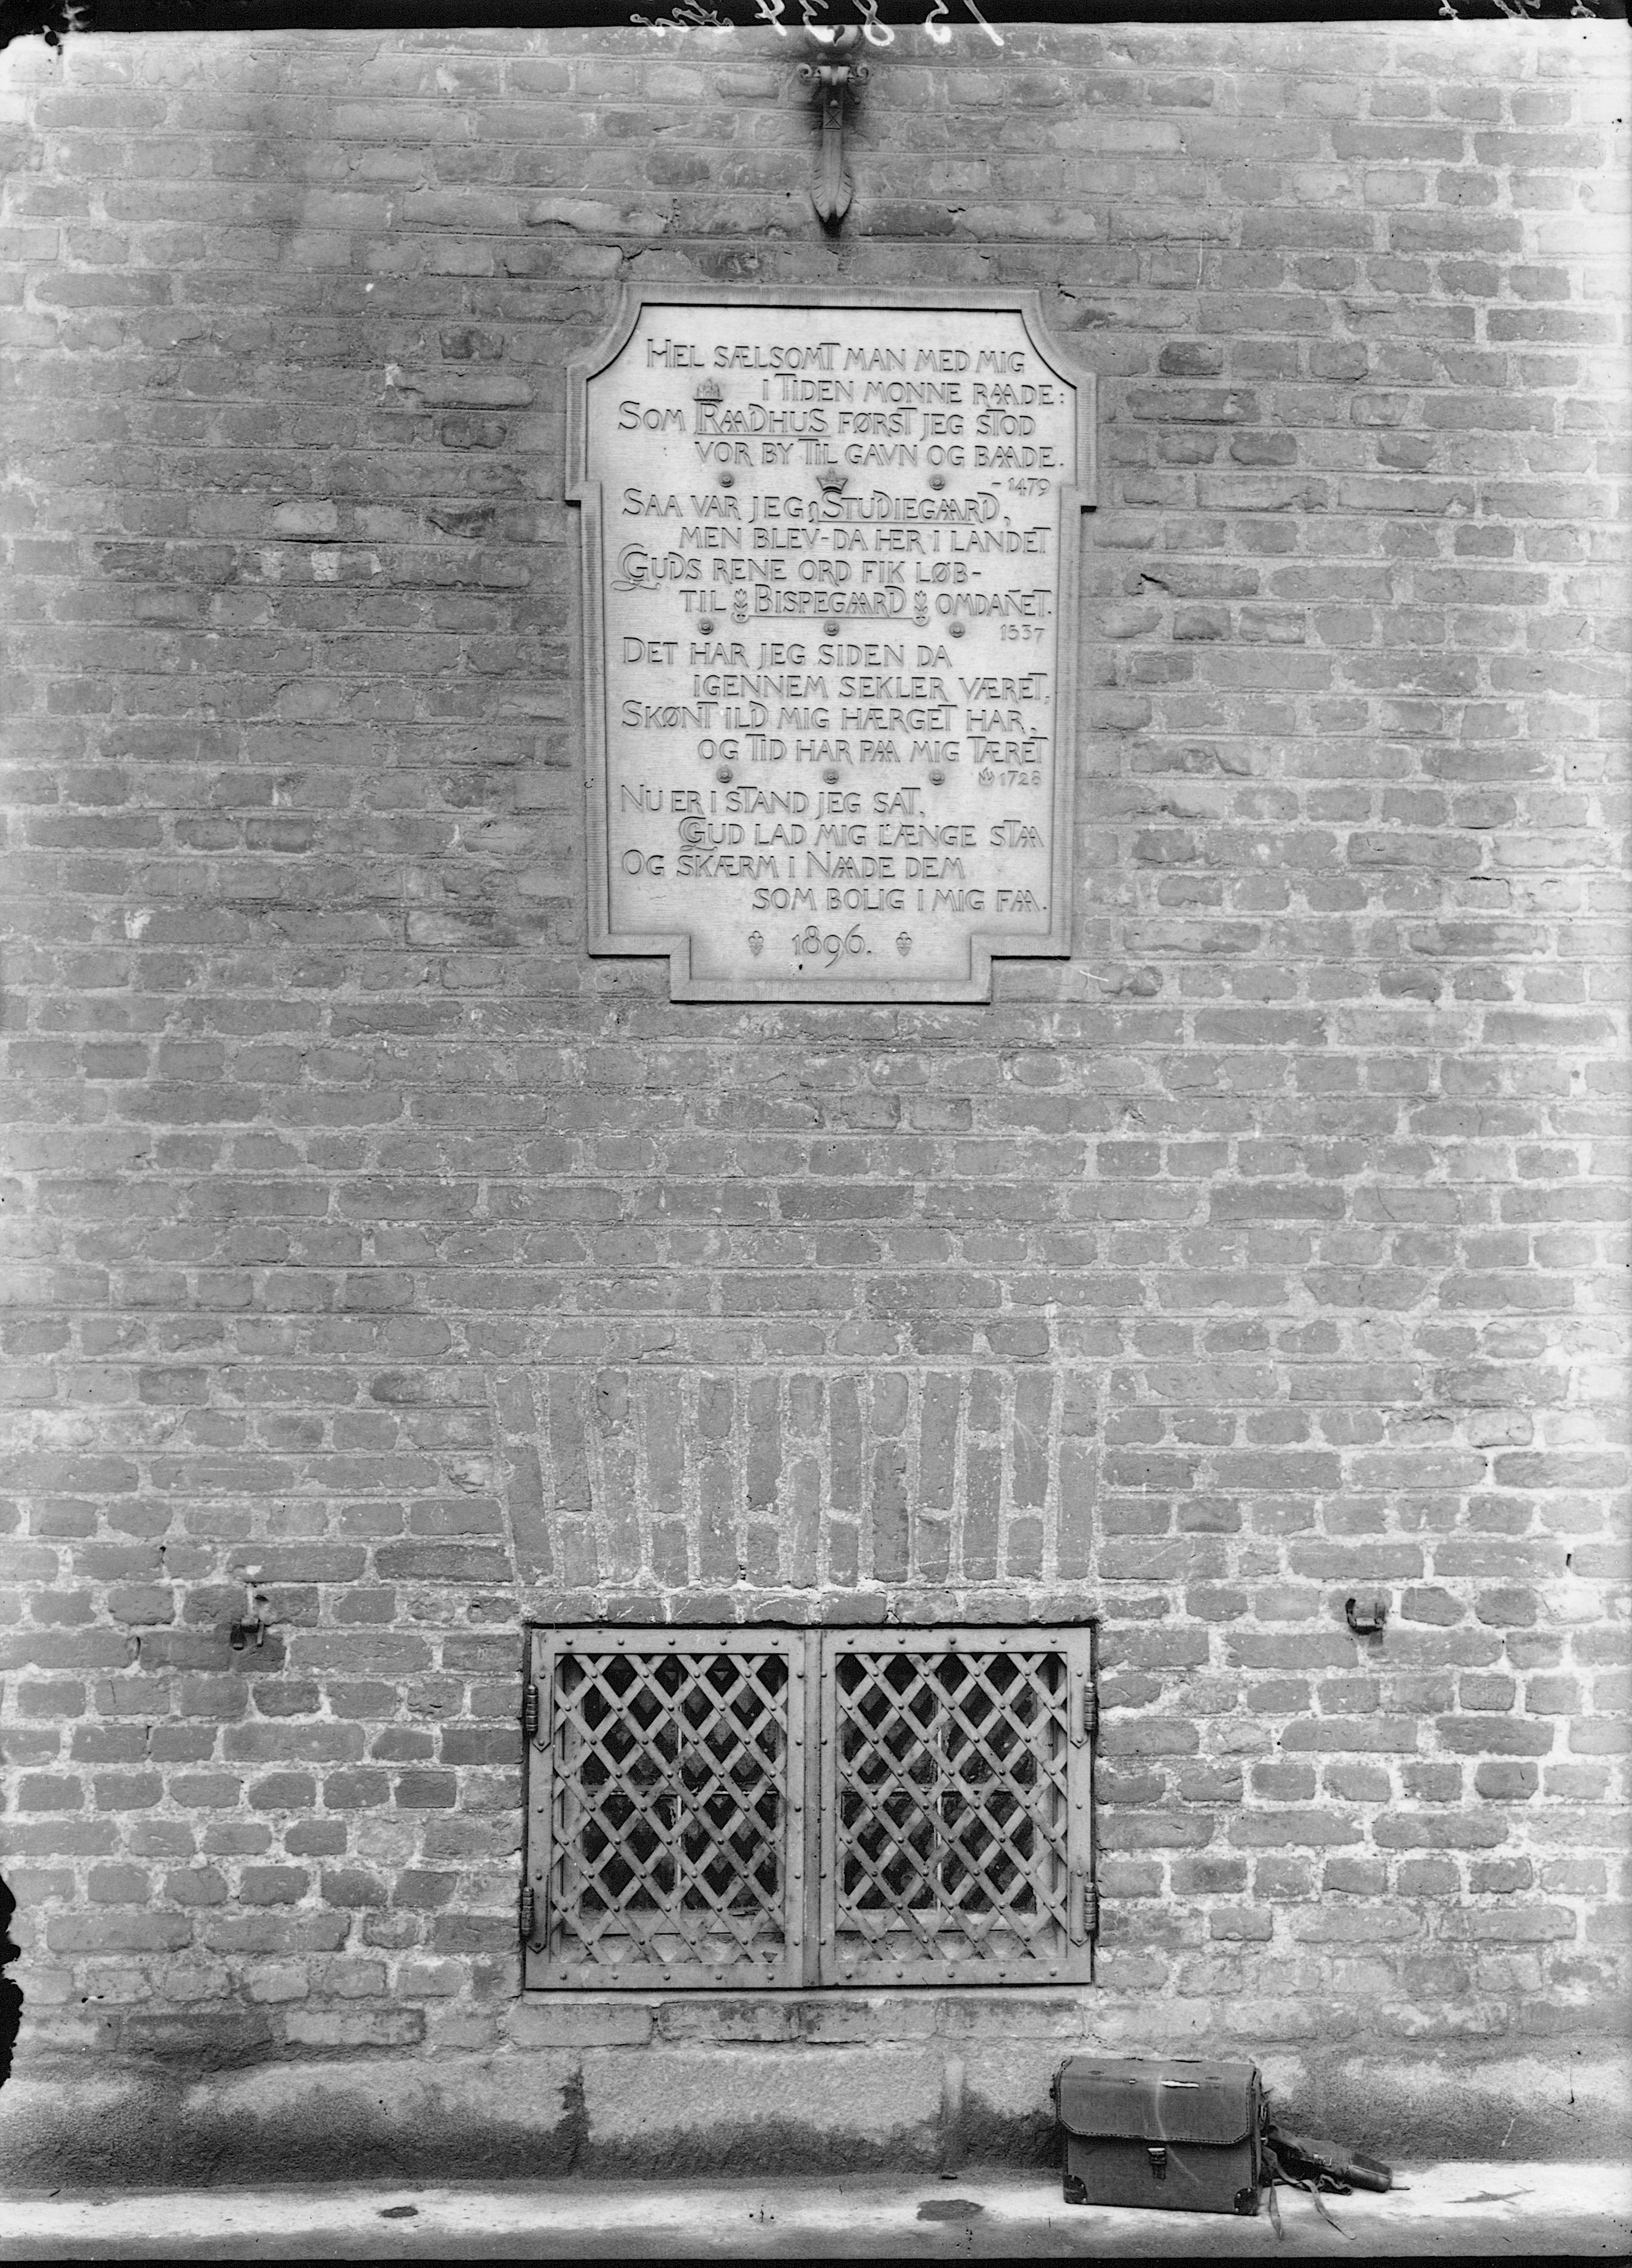 15834
HEL SÆLSOMT MAN MED MIG
I TIDEN MONNE RAADE:
SOM RAADHUS FØRST JEG STOD
VOR BY TIL GAVN OG BAADE.
- 1479
SAA VAR JEG STUDIEGAARD,
MEN BLEV - DA HER I LANDET
GUDS RENE ORD FIK LØB -
TIL BISPEGAARD OMDAN̄ET.
1537
DET HAR JEG SIDEN DA
IGENNEM SEKLER VÆRET,
SKØNT ILD MIG HÆRGET HAR,
OG TID HAR PAA MIG TÆRET
1728
NU ER I STAND JEG SAT,
GUD LAD MIG LÆNGE STAA
OG SKÆRM I NAADE DEM
SOM BOLIG I MIG FAA.
1896.